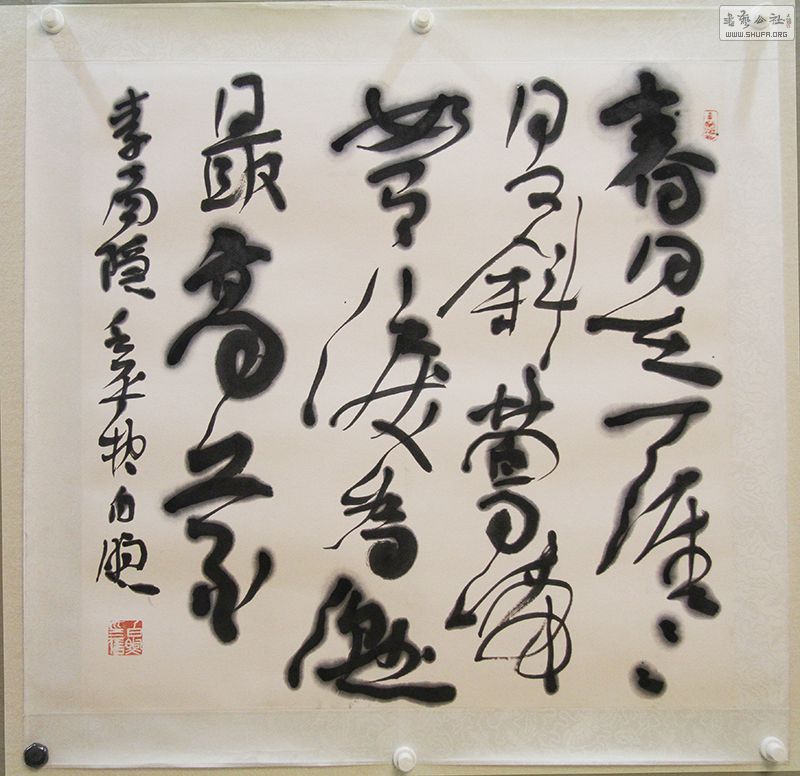 春日在天涯〻〻
日又斜鶯啼
如有淚為濕
最高花
李商隱
書藝公社
WWW.SHUFA.ORG